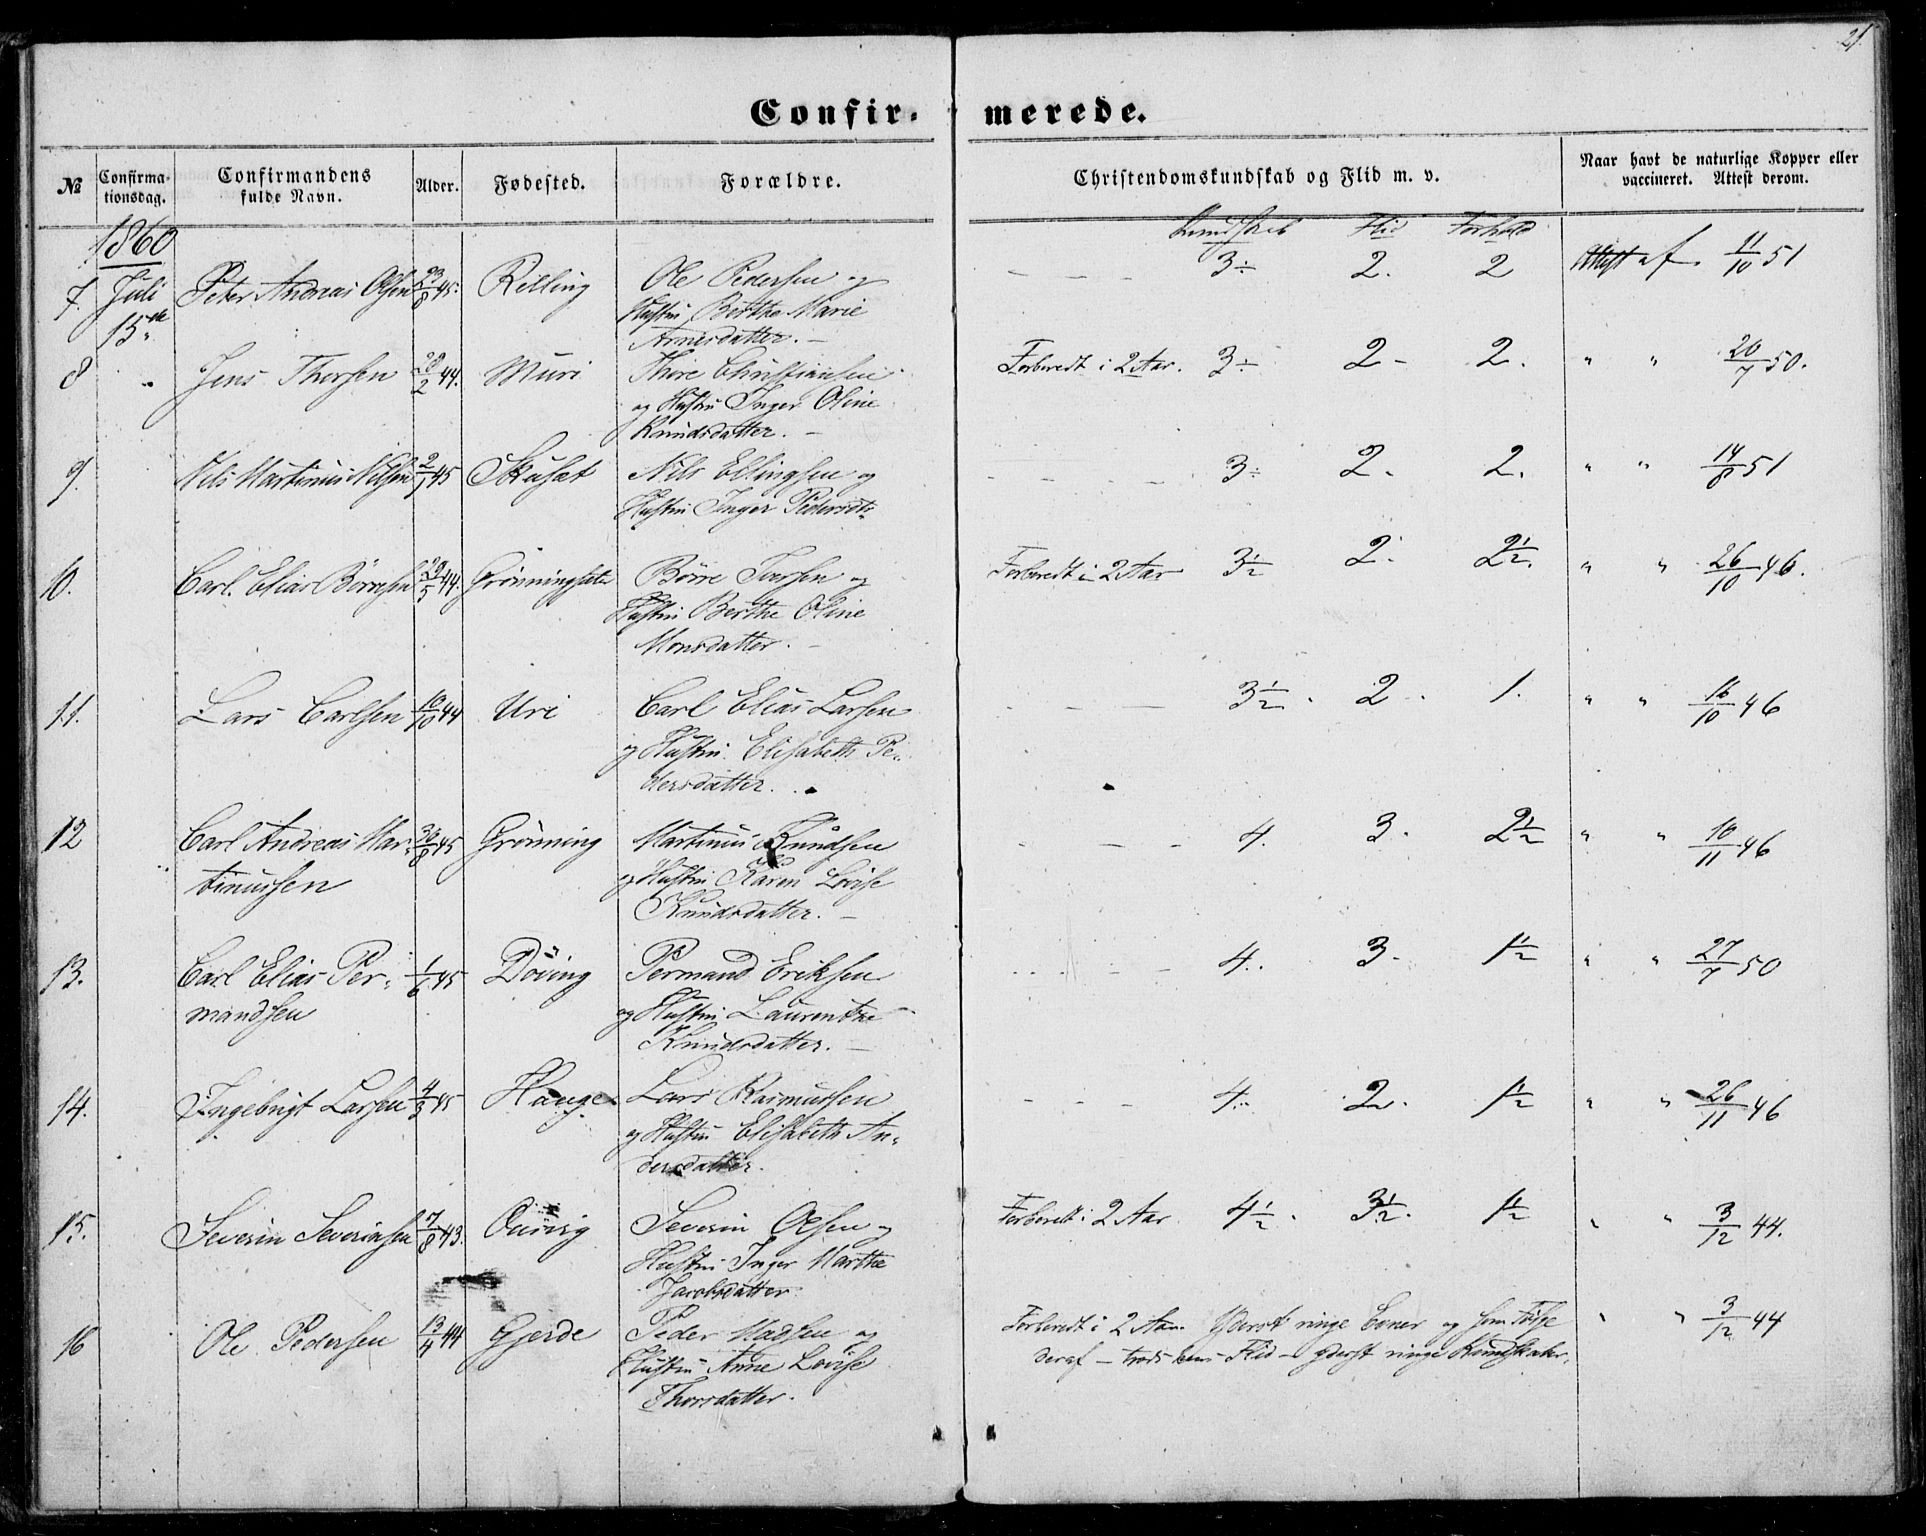 21.
Confir- merede.
No Confirma-tionsdag. Confirmandens fulde Navn. Alder. Fødested. Forældre. Christendomskundskab og Flid m. v. Naar havt de naturlige Kopper eller vaccineret. Attest derom.
1860 Kundskab Flid Forhold
7. Juli 15de Peter Andreas Olsen 23/8 45. Relling Ole Pedersen og - - - 3÷ 2. 2 Attest af 11/10 51
Hustru Birthe Marie
Arnesdatter. -
8 " Jens Thorsen 28/2 44. Muri Thore Christiansen Forberedt i 2 Aar. 3÷ 2- 2. " " 20/7 50.
og Hustru Inger Oline
Knudsdatter. -
9. Nils Martinus Nilsen 2/1 45 Skuset Nils Ellingsen og - - - - 3÷ 2. 2. " " 14/8 51
Hustru Inger Pedersdtr
10. Carl Elias Börresen 29/5 44. Grönningsæter Börre Iversen og Forberedt i 2 Aar 3½ 2. 2½. " " 26/10 46.
Hustru Berthe Oline
Monsdatter. -
11. Lars Carlsen 10/10 44 Uri Carl Elias Larsen - - - 3½. 2. 1. " " 16/10 46
og Hustru Elisabeth Pe-
dersdatter.
12 Carl Andreas Mar- 30/8 45 Grönning Martinus Knudsen - - - 4. 3. 2½ " " 10/11 46
tinussen og Hustru Karen Lovise
Knudsdatter. -
13. Carl Elias Per- 1/6 45 Döving Permand Eriksen - - - - 4. 3. 1½ " " 27/7 50
mandsen og Hustru Laurentse
Knudsdatter. -
14. Ingebrigt Larsen 4/3 45 Hauge Lars Rasmussen - - - - 4. 2. 1½ " " 26/11 46
og Hustru Elisabeth An-
dersdatter.
15. Severin Severinsen 7/8 43. Ourvig Severin Olsen og Forberedt i 2 Aar 4½. 3½. 1½ " " 3/12 44.
Hustru Inger Marthe
Jacobsdatter.
16 Ole Pedersen 13/4 44 Gjerde Peder Madsen og Forberedt i 2 Aar. Yderst ringe Evner og som Fölge " " 3/12 44
Hustru Anne Lovise deraf - trods hans Flid - yderst ringe Kundskaber.
Thorsdatter.